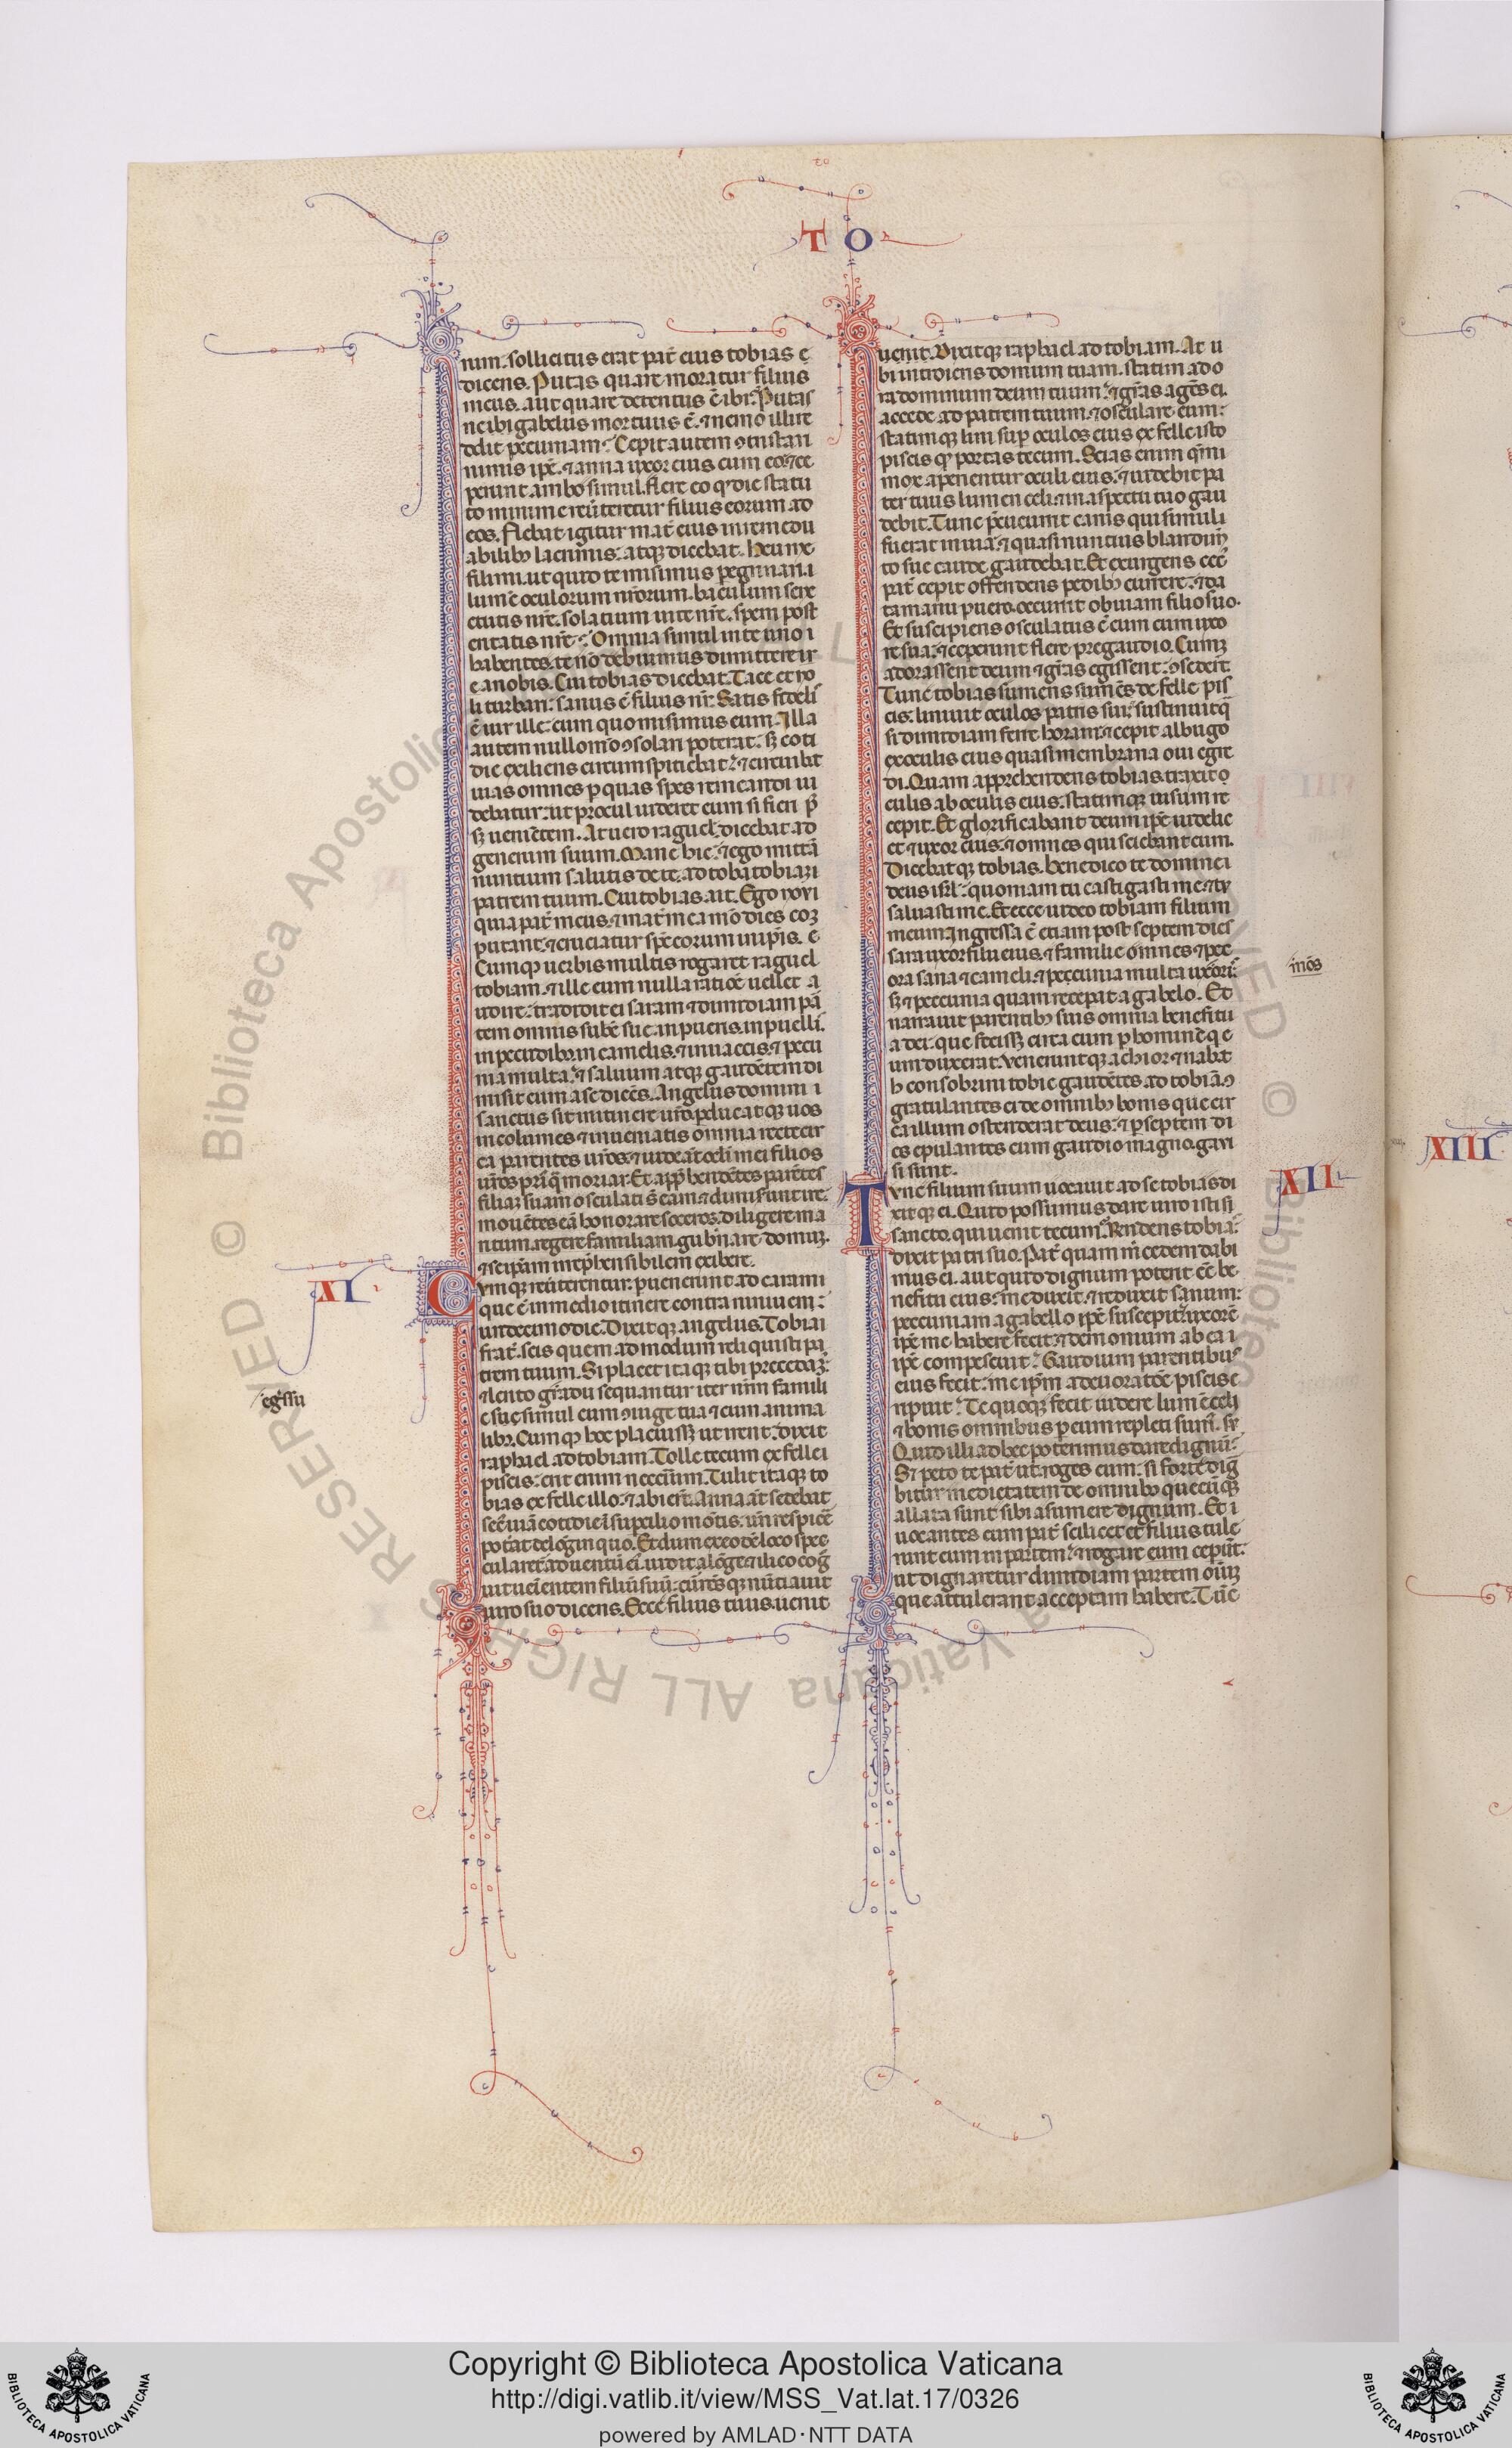 T O
num. sollicitus erat pat̄ eius tobias e
dicens. Putas quare moratur filius
meus. aut quare detentus ē ibi. Putas
ne ibi gabelus mortuus ē. ⁊ nemo illi re
ddit pecuniam. Cepit autem ꝯtristari
nimis ip̄e. ⁊ anna uxor eius cum eo. ⁊ ce
perunt ambo simul flere eo qꝰ die statu
to minime reũteretur filius eorum ad
eos. Flebat igitur mat̄ eius irremedi
abilibꝰ lacrimis. atqꝫ dicebat. heu me
fili mi. ut quid te misimus pegrinari
lumē oculorum nr̄orum. baculum sene
ctutis nr̄e. solatium uite nr̄e. spem post
eritatis nr̄e. Omnia simul in te uno
habentes. te nō debuimus dimittere ir
e a nobis. Cui tobias dicebat. Tace et no
li turbari. sanus ē filius nr̄. Satis fideli
ē uir ille. cum quo misimus eum. Illa
autem nullo mō ꝯsolari poterat. sꝫ coti
die exiliens circumspitiebat. ⁊ circuibat
uias omnes p quas spes remeandi ui
debatur. ut procul uideret eum si fieri
sꝫ ueniētem. At uero raguel dicebat ad
generum suum. Mane hic. ⁊ ego mittā
nuntium salutis de te. ad tobiam
patrem tuum. Cui tobias ait. Ego noui
quia pat̄ meus ⁊ mat̄ mea mō dies
putant. ⁊ cruciatur sp̄c eorum in ip̄is.
Cumqꝫ uerbis multis rogaret raguel
tobiam. ⁊ ille eum nulla ratiōe uellet a
udire. tradidit ei saram ⁊ dimidiam pā
tem omnis sube sue in pueris. in puelli
in pecudibꝰ. in camelis. ⁊ in uaccis. ⁊ pecu
nia multa. ⁊ saluum atqꝫ gaudētem di
misit eum a se dicēs. Angelus domini
sanctus sit in itinere ur̄o. pducatqꝫ uos
incolumes ⁊ inueniatis omnia recte cir
ca parentes ur̄os. ⁊ uideāt oculi mei filios
ur̄os priꝰqꝫ moriar. Et appħendētes parētes
filiam suam osculati s̄ eam ⁊ dimiserunt ire
monētes eā honorare soceros. diligere ma
ritum. regere familiam. gub̄nare domuꝫ.
⁊ seip̄am irrep̄hensibilem exibere.
XI
Cumqꝫ reũterentur. puenerunt ad carami
que ē in medio itinere contra niniuem
undecimo die. Dixitqꝫ angelus. Tobia
frat̄. scis quem ad modum reliquisti pa
trem tuum. Si placet itaqꝫ tibi precedaꝫ
⁊ lento gradu sequantur iter nr̄m famili
e sue simul cum ꝯiuge tua ⁊ cum anima
libꝫ. Cumqꝫ hoc placuissꝫ ut irent. dixit
raphael ad tobiam. Tolle tecum ex felle
piscis. erit enim necc̄ium. Tulit itaqꝫ to
bias ex felle illo. ⁊ abier̄t. Anna āt sedebat
sec̄ uiā cotidie in supcilio mōtis. un̄ respice
pot̄at de lōginquo. Et dum ex eodē loco spec
cularet̄ aduentū ei. uidit a lōge. ⁊ ilico cog̃
uit ueniētem filiū suū. currēs qꝫ nūtiauit
uiro suo dicens. Ecce filius tuus uenit
egs̄su
uenit. Dixitqꝫ raphael ad tobiam. At u
bi introiens domum tuam. statim ado
ra dominum deum tuum. ⁊ gr̄as agēs ei.
accede ad patrem tuum. ⁊ osculare eum.
statimqꝫ lini sup oculos eius ex felle isto
piscis qꝰ portas tecum. Scias enim qm̄
mox aperientur oculi eius. ⁊ uidebit pa
ter tuus lumen celi. ⁊ in aspectu tuo gau
debit. Tunc p̄cucurrit canis qui simul
fuerat in uia. ⁊ quasi nuntius
to sue caude gaudebat. Et exurgens cec̄
pat̄ cepit offendens pedibꝰ currere. ⁊ da
ta manu puero. occurrit obuiam filio suo.
Et suscipiens osculatus ē eum cum uxo
re sua. ⁊ ceperunt flere pregaudio. Cumꝫ
adorassent deum ⁊ gr̄as egissent. ꝯsedert̄
Tunc tobias sumens de felle pis
cis. liniuit oculos patris sui. sustinuitqꝫ
si dimidiam fere horam. ⁊ cepit albugo
ex oculis eius quasi membrana oui egre
di. Quam apprehendens tobias. traxit o
culis ab oculis eius. statimqꝫ uisum re
cepit. Et glorificabant deum ip̄e uidelic
et ⁊ uxor eius. ⁊ omnes qui sciebant eum.
Dicebatqꝫ tobias. benedico te domine
deus isr̄l. quoniam tu castigasti me. ⁊ tu
saluasti me. Et ecce uideo tobiam filium
meum. Ingressa ē etiam post septem dies
sara uxor filii eius. ⁊ familie omnes ⁊ pec
ora sana ⁊ cameli. ⁊ peccunia multa uxori
sꝫ ⁊ peccunia quam recepat a gabelo. Et
narrauit parentibꝰ suis omnia benefitii
a dei. que fecissꝫ circa eum p hominē q e
um duxerat. Veneruntqꝫ achior ⁊ nabat
h consobrini tobie gaudētes ad tobiā. ꝯ
gratulantes ei de omnibꝰ bonis que cir
ca illum ostenderat deus. ⁊ p septem di
es epulantes cum gaudio magno gaui
si sunt.
ino̅s
XII
Tunc filium suum uocauit ad se tobias di
xitqꝫ ei. Quid possumus dare uiro isti si
sancto. qui uenit tecum. Rn̄dens tobia
dixit patri suo. Pat̄ quam m̄cedem dabi
mus ei. aut quid dignum poterit ēē be
nefitii eius. me duxit. ⁊ reduxit sanum.
peccuniam a gabello ip̄e suscepit. uxorē
ip̄e me habere fecit. ⁊ demonium ab ea
ip̄e compescuit. Gaudium parentibus
eius fecit. me ip̄m a deuoratiōe piscis e
ripuit. Te quoqꝫ fecit uidere lumē celi
⁊ bonis omnibus p eum repleti sumꝰ.
Quid illi ad hec poterimus dare dignū.
Sꝫ peto te pat̄ ut roges eum. si forte dig̃
bitur medietatem de omnibꝰ que cūqꝫ
allata sunt sibi asumere dignum. Et
uocantes eum pat̄ scilicet et filius tule
runt eum in partem. ⁊ rogare eum ceper̄t
ut dignaretur dimidiam partem om̄iꝫ
que attulerant acceptam habere. Tūc
XIII
Copyright © Biblioteca Apostolica Vaticana
http://digi.vatlib.it/view/MSS_Vat.lat.17/0326
powered by AMLAD·NTT DATA
BIBLIOTECA APOSTOLICA VATICANA
BIBLIOTECA APOSTOLICA VATICANA
Biblioteca Apostolica Vaticana ALL RIGHTS RESERVED ©